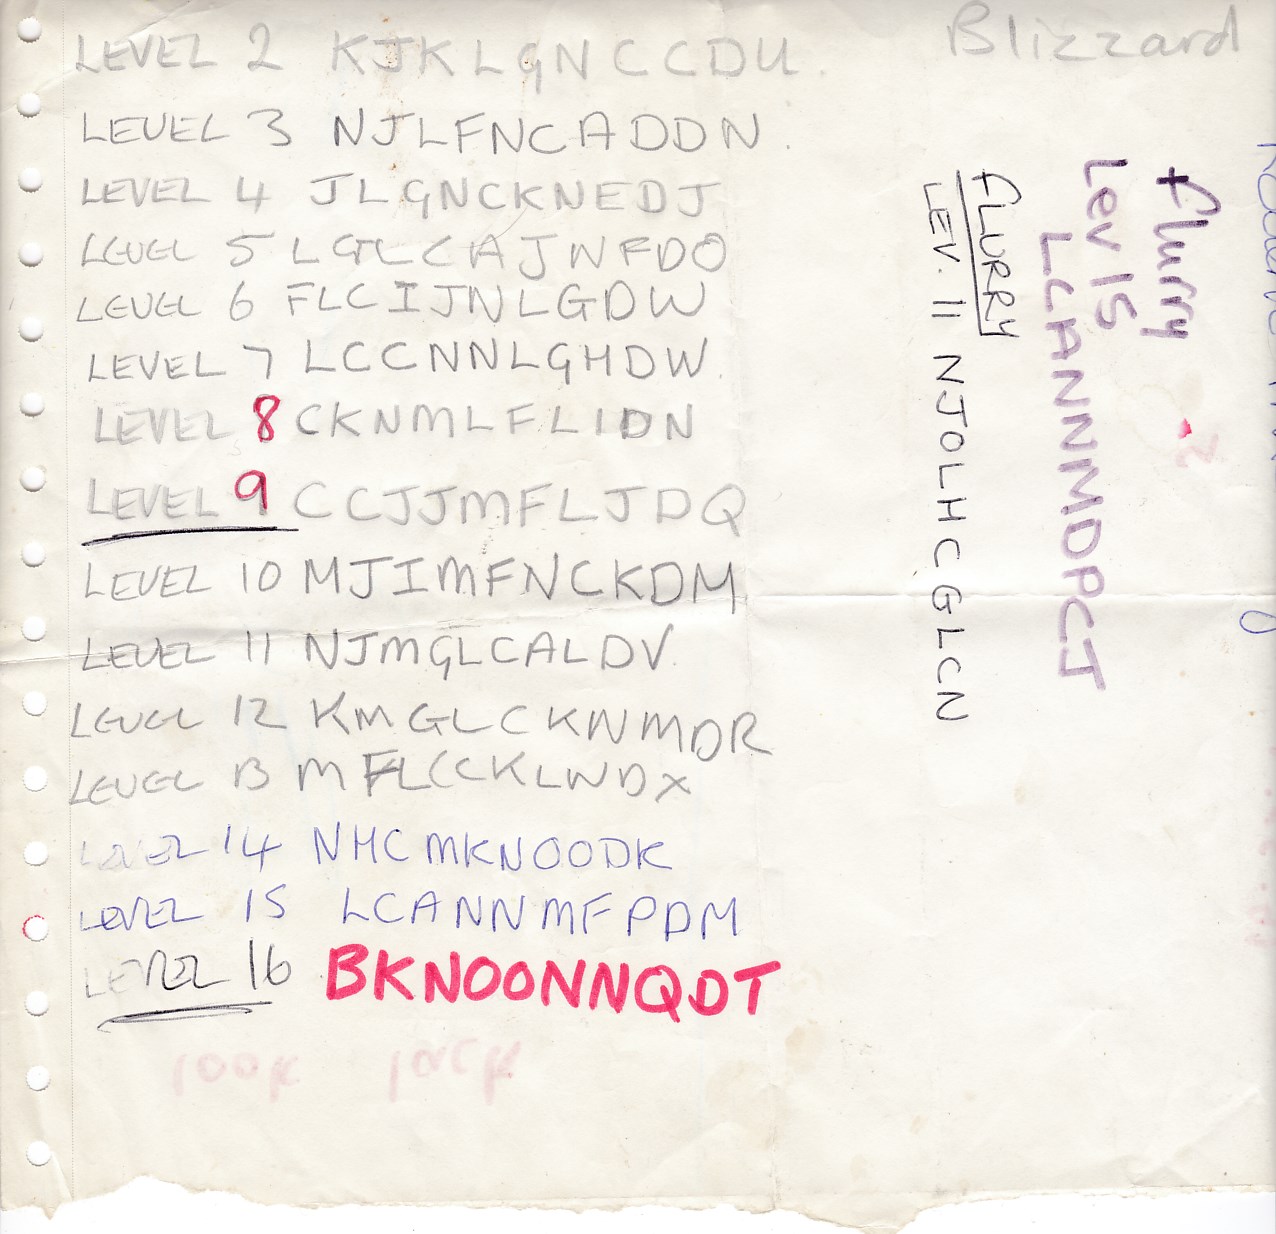 Blizzard
LEVEL 2 KJKLGNCCDU.
LEVEL 3 NJLFNCADDN.
LEVEL 4 JLGNCKNEDJ
LEVEL 5 LGLCAJNFDO
LEVEL 6 FLCIJNLGDW
LEVEL 7 LCCNNLGHDW.
LEVEL 8 CKNMLFLIDN
LEVEL 9 CCJJMFLJDQ
LEVEL 10 MJIMFNCKDM
LEVEL 11 NJMGLCALDV.
LEVEL 12 KMGLCKNMDR
LEVEL 13 MFLCCKLNDX
LEVEL 14 NHCMKNOODK
LEVEL 15 LCANNMFPDM
LEVEL 16 BKNOONNQDT
flurry
Lev 15
LCANNMDPCJ
fLURRY
LEV. 11 NJOLHCGLCN
look